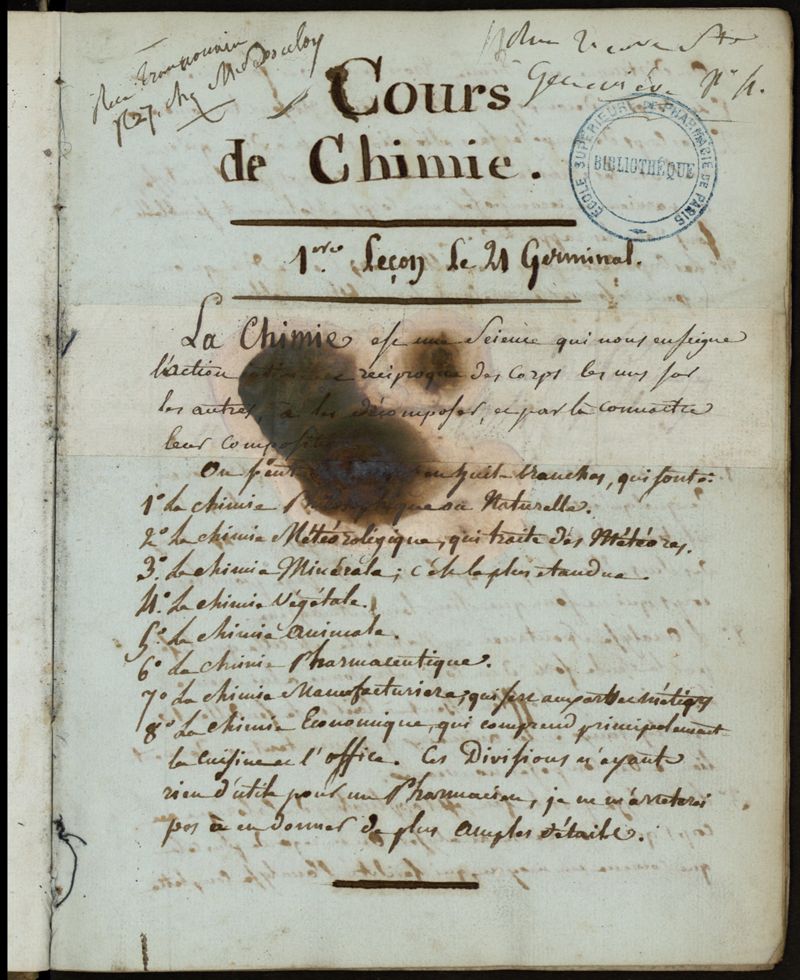 Rue
N° 27 chez Mr
Rue neuve Ste
Geneviève N° 4.
Cours
de Chimie.
ECOLE SUPÉRIEURE DE PHARMACIE DE PARIS
BIBLIOTHÈQUE
1ere Leçon Le 21 Germinal.
La Chimie est une Science qui nous enseigne
l'action reciproque des Corps les uns sur
les autres, à les décomposer, et par la connoitre
leur composition
On peut en huit branches, qui sont:
1° La chimie Philosophique ou Naturelle.
2° La chimie Météorologique, qui traite des Météores.
3°. La chimie Minérale; c'est la plus etendue.
4°. La chimie Végétale.
5°. La chimie animale.
6° La chimie Pharmaceutique.
7° La chimie Manufacturiere; qui sert aux arts et métiers
8° La chimie Economique, qui comprend principalement
la cuisine et l'office. Ces Divisions n'ayant
rien d'utile pour un Pharmacien, je ne m'arreterai
pas à en donner de plus amples détails.